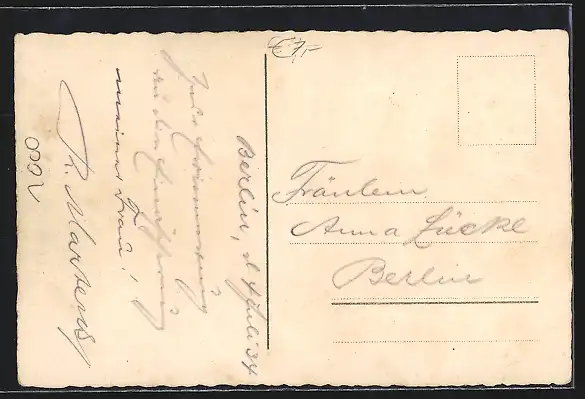 Berlin, d. 4. Juli 34.
Zur Erinnerung
an den
meiner Frau!
R. Martens
Fräulein
Anna Lücke
Berlin